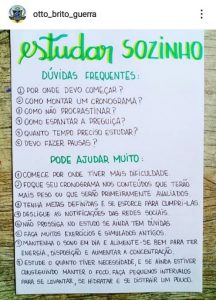 otto_brito_guerra
estudar SOZINHO
DÚVIDAS FREQUENTES:
① POR ONDE DEVO COMEÇAR?
② COMO MONTAR UM CRONOGRAMA?
③ COMO NÃO PROCRASTINAR?
④ COMO ESPANTAR A PREGUIÇA?
⑤ QUANTO TEMPO PRECISO ESTUDAR?
⑥ DEVO FAZER PAUSAS?
PODE AJUDAR MUITO:
① COMECE POR ONDE TIVER MAIS DIFICULDADE.
② FOQUE SEU CRONOGRAMA NOS CONTEÚDOS QUE TERÃO
MAIS PESO OU QUE SERÃO PRIMEIRAMENTE AVALIADOS.
③ TENHA METAS DEFINIDAS E SE ESFORCE PARA CUMPRI-LAS.
④ DESLIGUE AS NOTIFICAÇÕES DAS REDES SOCIAIS.
⑤ NÃO PROSSIGA NO ESTUDO SE AINDA TEM DÚVIDAS.
⑥ FAÇA MUITOS EXERCÍCIOS E SIMULADOS ANTIGOS.
⑦ MANTENHA O SONO EM DIA E ALIMENTE-SE BEM PARA TER
ENERGIA, DISPOSIÇÃO E AUMENTAR A CONCENTRAÇÃO.
⑧ ESTUDE O QUANTO TIVER NECESSIDADE, E SE AINDA ESTIVER
CONSEGUINDO MANTER O FOCO. FAÇA PEQUENOS INTERVALOS
PARA SE LEVANTAR, SE HIDRATAR E SE DISTRAIR UM POUCO.